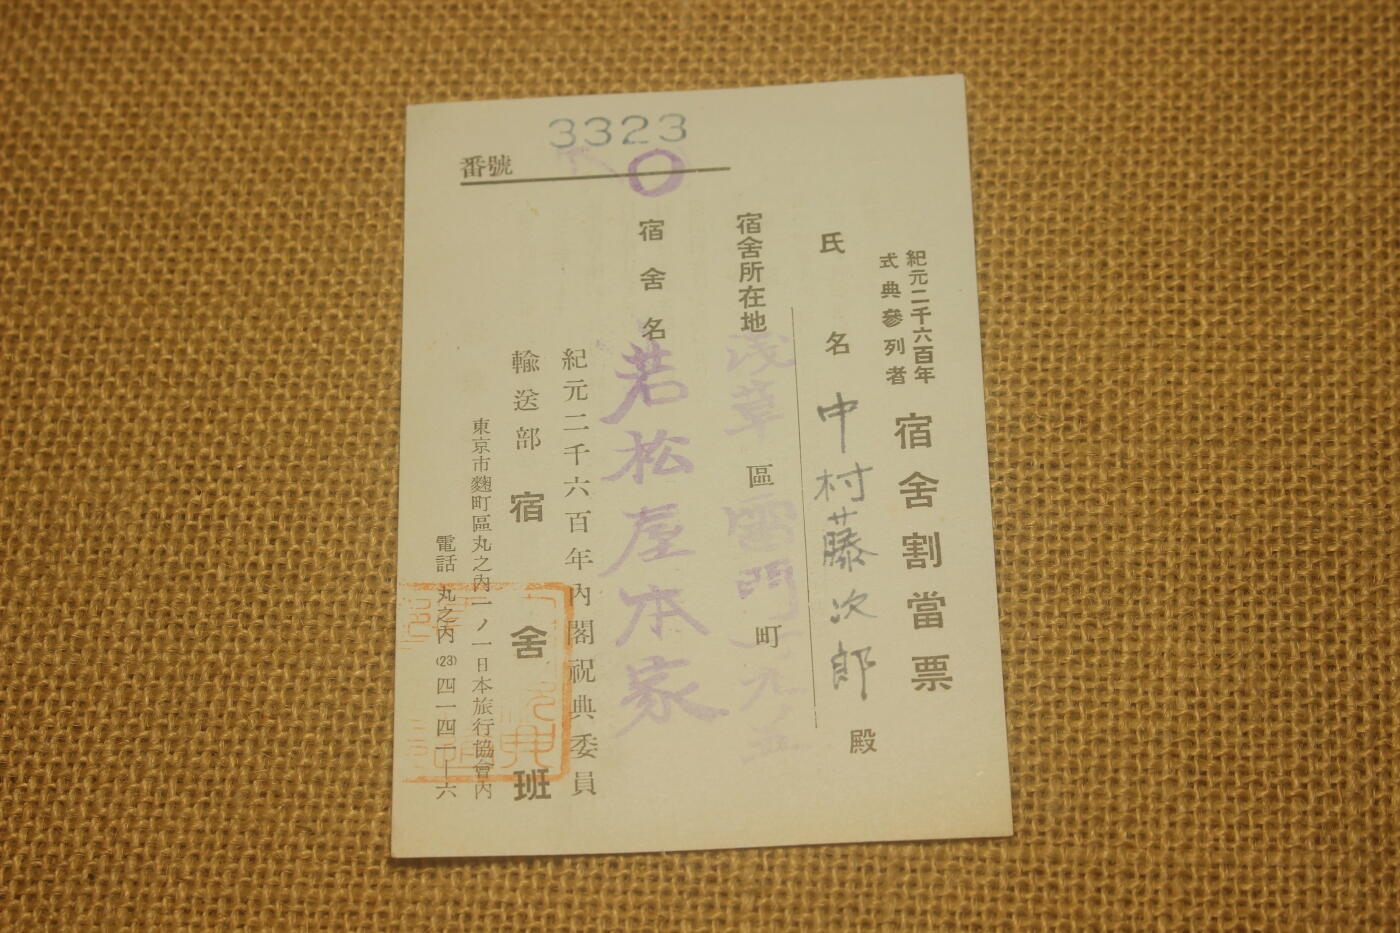 3323
番號
紀元二千六百年
式典參列者
宿舍割當票
氏名 中村藤次郎 殿
宿舍所在地 浅草 區 雷門 町
宿舍名 若松屋本家
紀元二千六百年內閣祝典委員
輸送部 宿舍班
東京市麴町區丸之內一ノ一日本旅行協會內
電話 丸之內(23)四一四一—六